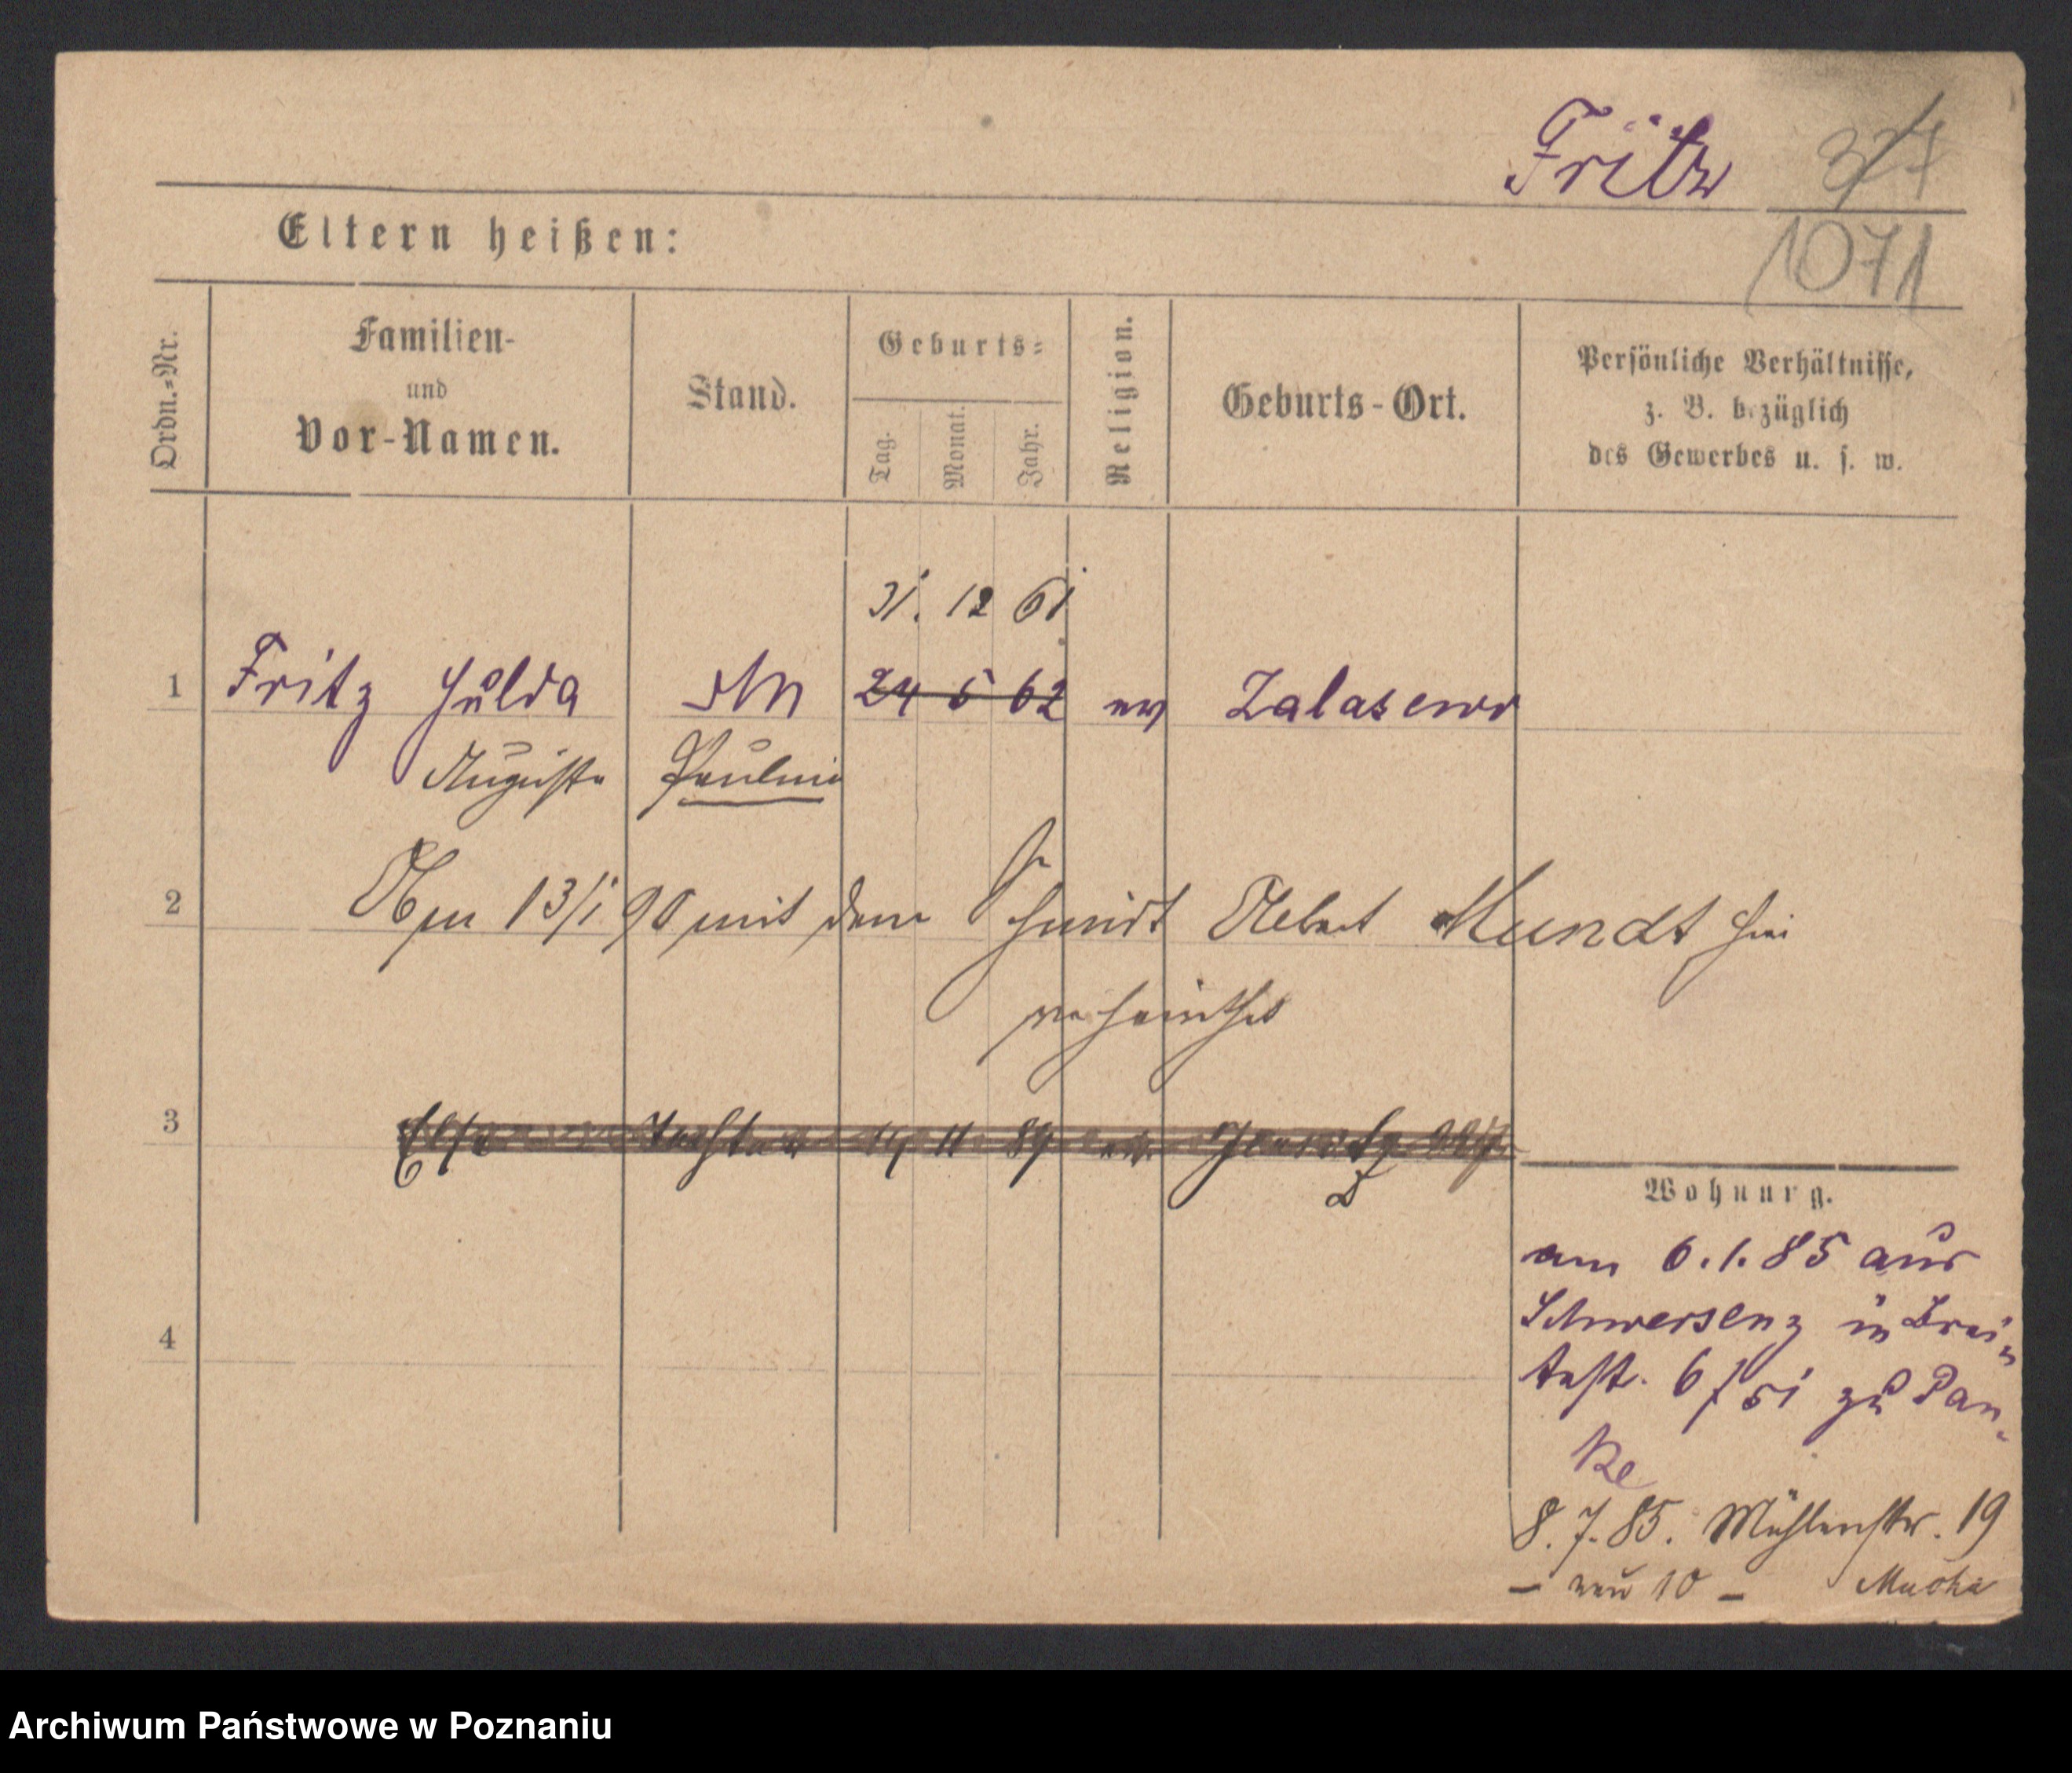 Fritz 377
1071
Eltern heißen:
Ordn.=Nr.
Familien-
und
Vor-Namen.
Stand.
Geburts=
Tag.
Monat.
Jahr.
Religion.
Geburts-Ort.
Persönliche Verhältnisse,
z. B. bezüglich
des Gewerbes u. s. w.
31. 12 61
1 Fritz Hulda 24 5 62 ev Zalasewo
Auguste Pauline
2 Am 13/1 90 mit dem Schmidt Albert Mundt hier
verheirathet
3 Tochter 14 11 89 ev.
Wohnung.
am 6.1.85 aus
Schwersenz in Brei-
testr. 6 bei zu Pan-
ke
4
8.7.85. Mühlenstr. 19
- neu 10 -
Archiwum Państwowe w Poznaniu